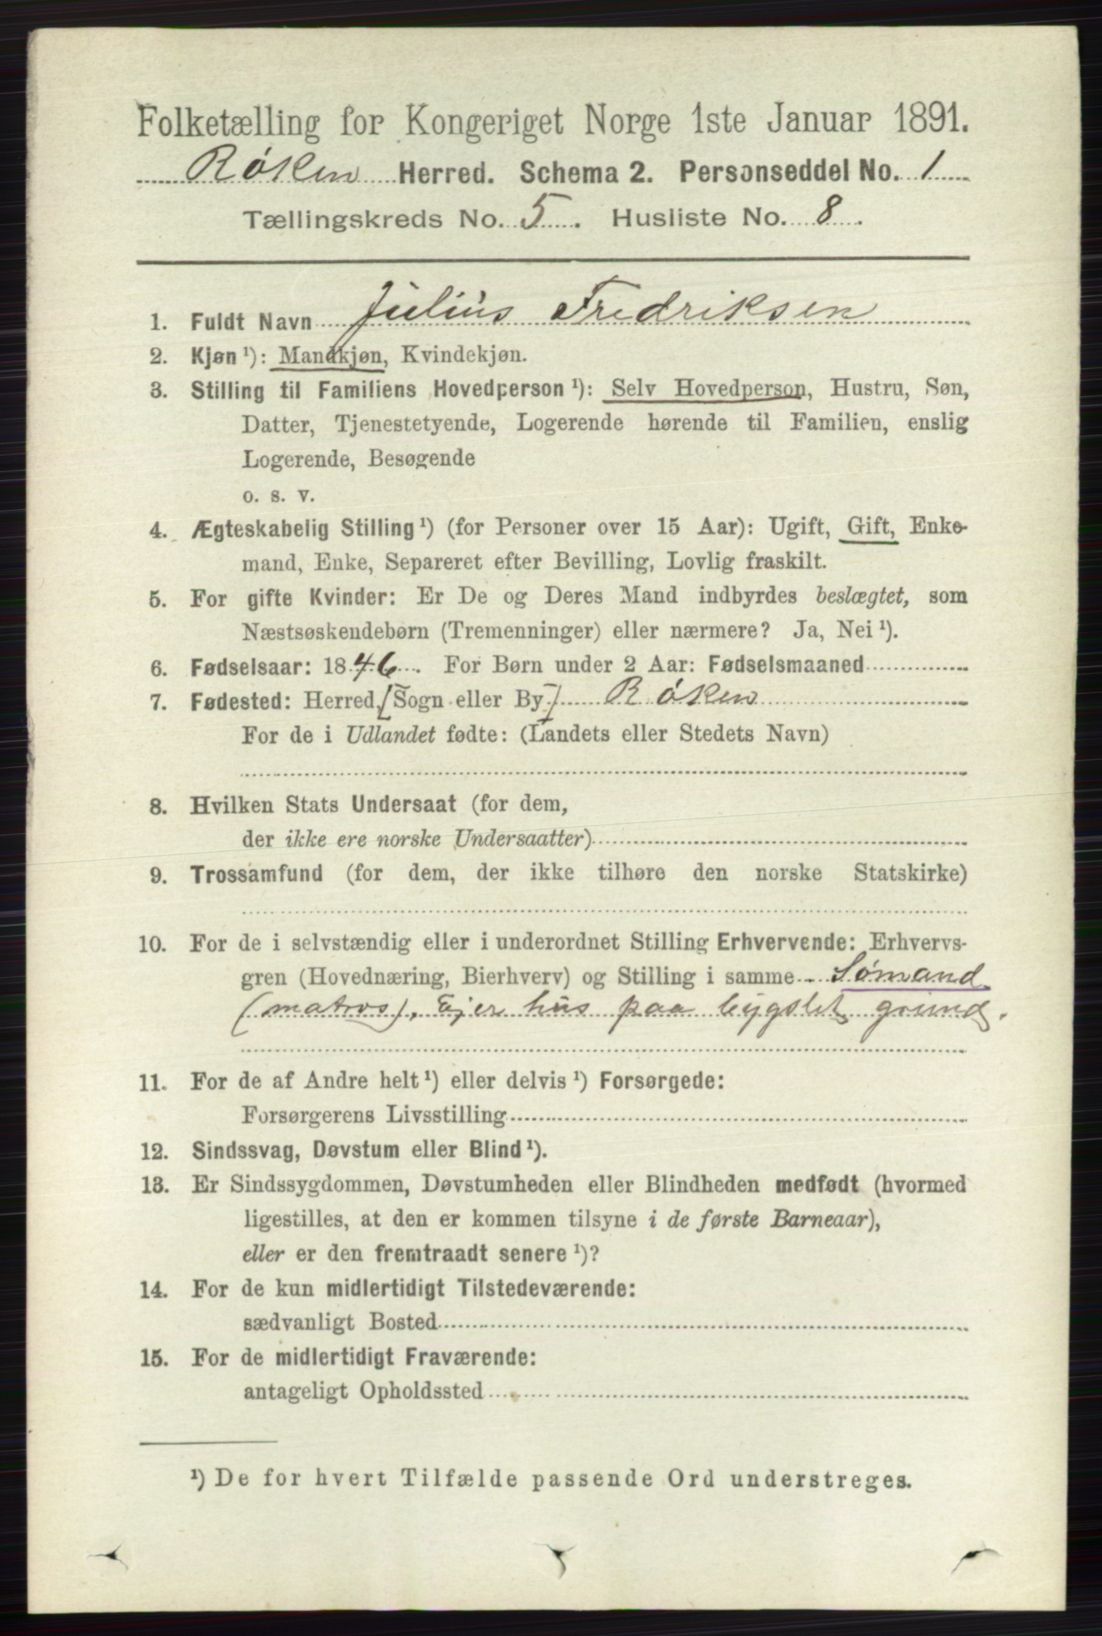 Folketælling for Kongeriget Norge 1ste Januar 1891.
Røken Herred. Schema 2. Personseddel No. 1
Tællingskreds No. 5. Husliste No. 8.
1. Fuldt Navn Julius Fredriksen
2. Kjøn ¹): Mandkjøn, Kvindekjøn.
3. Stilling til Familiens Hovedperson ¹): Selv Hovedperson, Hustru, Søn,
Datter, Tjenestetyende, Logerende hørende til Familien, enslig
Logerende, Besøgende
o. s. v.
4. Ægteskabelig Stilling ¹) (for Personer over 15 Aar): Ugift, Gift, Enke-
mand, Enke, Separeret efter Bevilling, Lovlig fraskilt.
5. For gifte Kvinder: Er De og Deres Mand indbyrdes beslægtet, som
Næstsøskendebørn (Tremenninger) eller nærmere? Ja, Nei ¹).
6. Fødselsaar: 1846. For Børn under 2 Aar: Fødselsmaaned
7. Fødested: Herred, [Sogn eller By] Røken
For de i Udlandet fødte: (Landets eller Stedets Navn)
8. Hvilken Stats Undersaat (for dem,
der ikke ere norske Undersaatter)
9. Trossamfund (for dem, der ikke tilhøre den norske Statskirke)
10. For de i selvstændig eller i underordnet Stilling Erhvervende: Erhvervs-
gren (Hovednæring, Bierhverv) og Stilling i samme Sømand
(matros). Ejer hus paa bygslet grund.
11. For de af Andre helt ¹) eller delvis ¹) Forsørgede:
Forsørgerens Livsstilling
12. Sindssvag, Døvstum eller Blind ¹).
13. Er Sindssygdommen, Døvstumheden eller Blindheden medfødt (hvormed
ligestilles, at den er kommen tilsyne i de første Barneaar),
eller er den fremtraadt senere ¹)?
14. For de kun midlertidigt Tilstedeværende:
sædvanligt Bosted
15. For de midlertidigt Fraværende:
antageligt Opholdssted
¹) De for hvert Tilfælde passende Ord understreges.